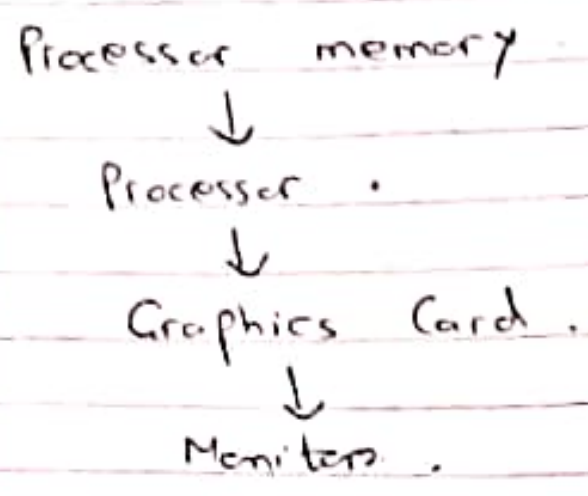 Processor memory
↓
Processor .
↓
Graphics Card .
↓
Monitors .